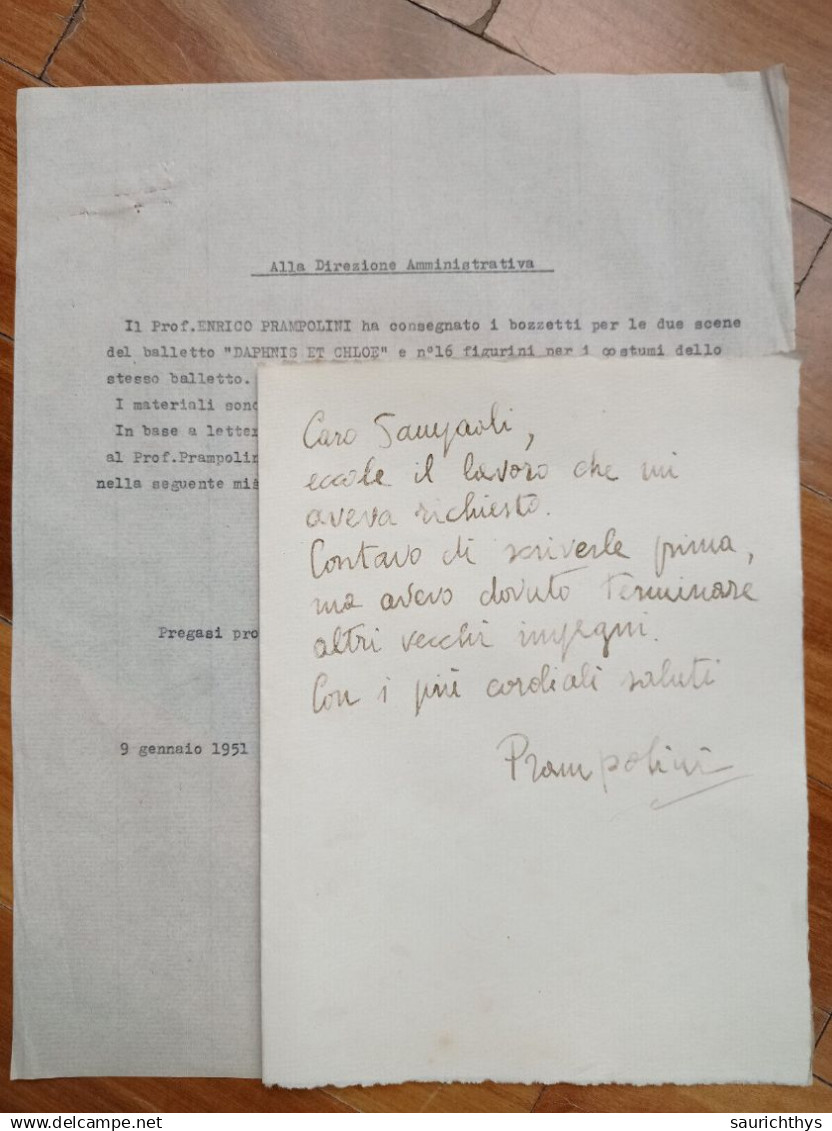 Alla Direzione Amministrativa
Il Prof.ENRICO PRAMPOLINI ha consegnato i bozzetti per le due scene
del balletto "DAPHNIS ET CHLOE" e n°16 figurini per i costumi dello
stesso balletto.
I materiali sono
In base a letter
al Prof.Prampolin
nella seguente mis
Pregasi pro
9 gennaio 1951
Caro Sampaoli,
eccole il lavoro che mi
aveva richiesto.
Contavo di scriverle prima,
ma avevo dovuto terminare
altri vecchi impegni.
Con i più cordiali saluti
Prampolini
delcampe.net
saurichthys